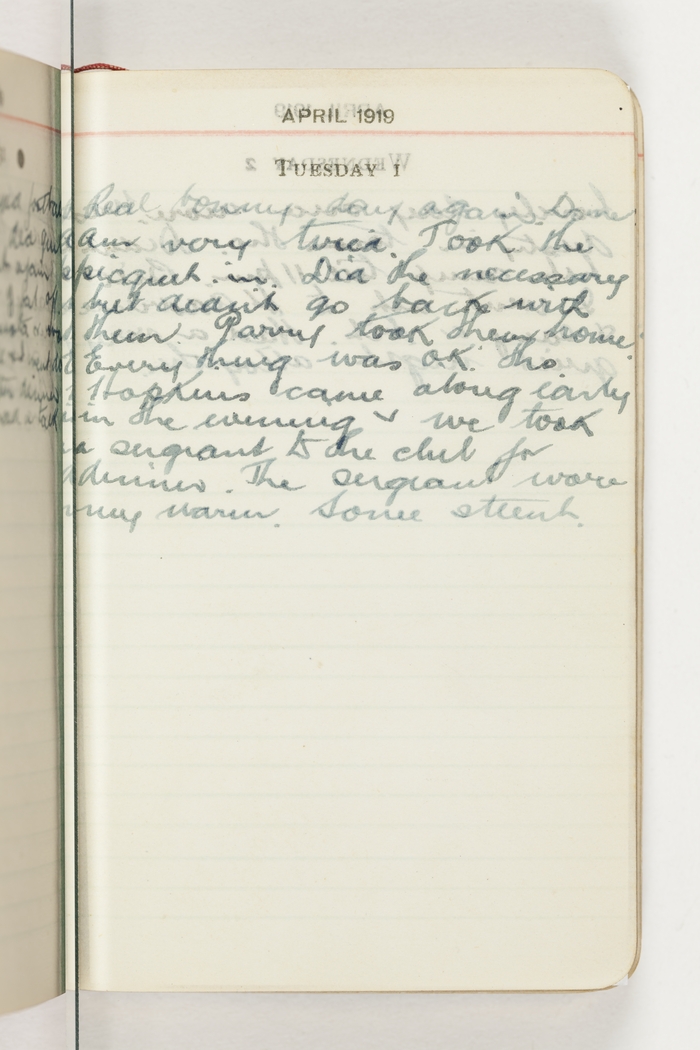 APRIL 1919
TUESDAY 1
Real bonny day again Damn
am very tired. Took the
picquet in. Did the necessary
but didn't go back with
them. Parry took them home.
Every thing was O.K. tho.
Hopkins came along early
in the evening & we took
a sergeant to the club for
dinner. The sergeant wore
my warm. Some stunt.